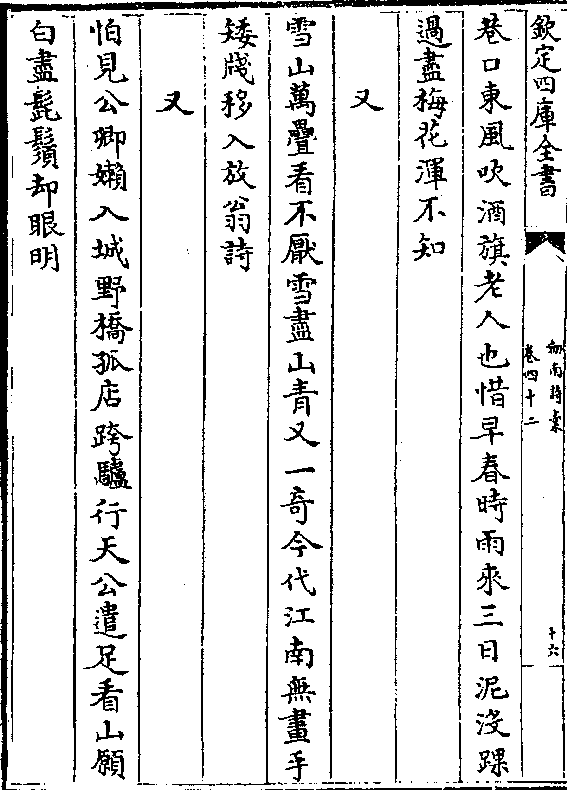 欽定四庫全書
劒南詩藁
卷四十二
十六
巷口東風吹酒旗老人也惜早春時雨來三日泥沒踝
過盡梅花渾不知
又
雪山萬疊看不厭雪盡山青又一奇今代江南無畫手
矮牋移入放翁詩
又
怕見公卿嬾入城野橋孤店跨驢行天公遣足看山願
白盡髭鬚却眼明